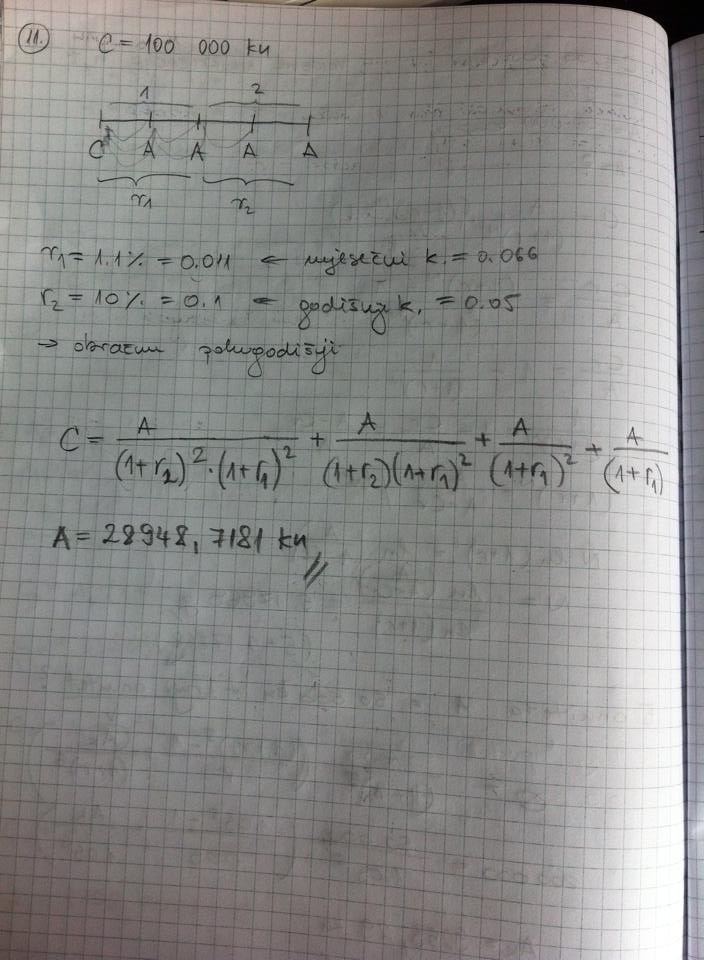 11. C = 100 000 kn
1 2
C A A A A
r1 r2
r1 = 1.1% = 0.011 ← mjesečni k. = 0.066
r2 = 10% = 0.1 ← godišnji k. = 0.05
→ obračun polugodišnji
C = A/((1+r2)²·(1+r1)²) + A/((1+r2)(1+r1)²) + A/(1+r1)² + A/(1+r1)
A = 28948,7181 kn